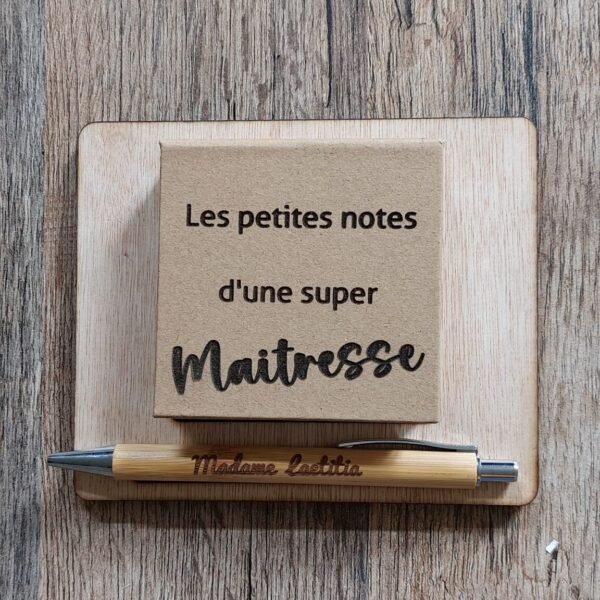 Les petites notes
d'une super
Maitresse
Madame Laetitia